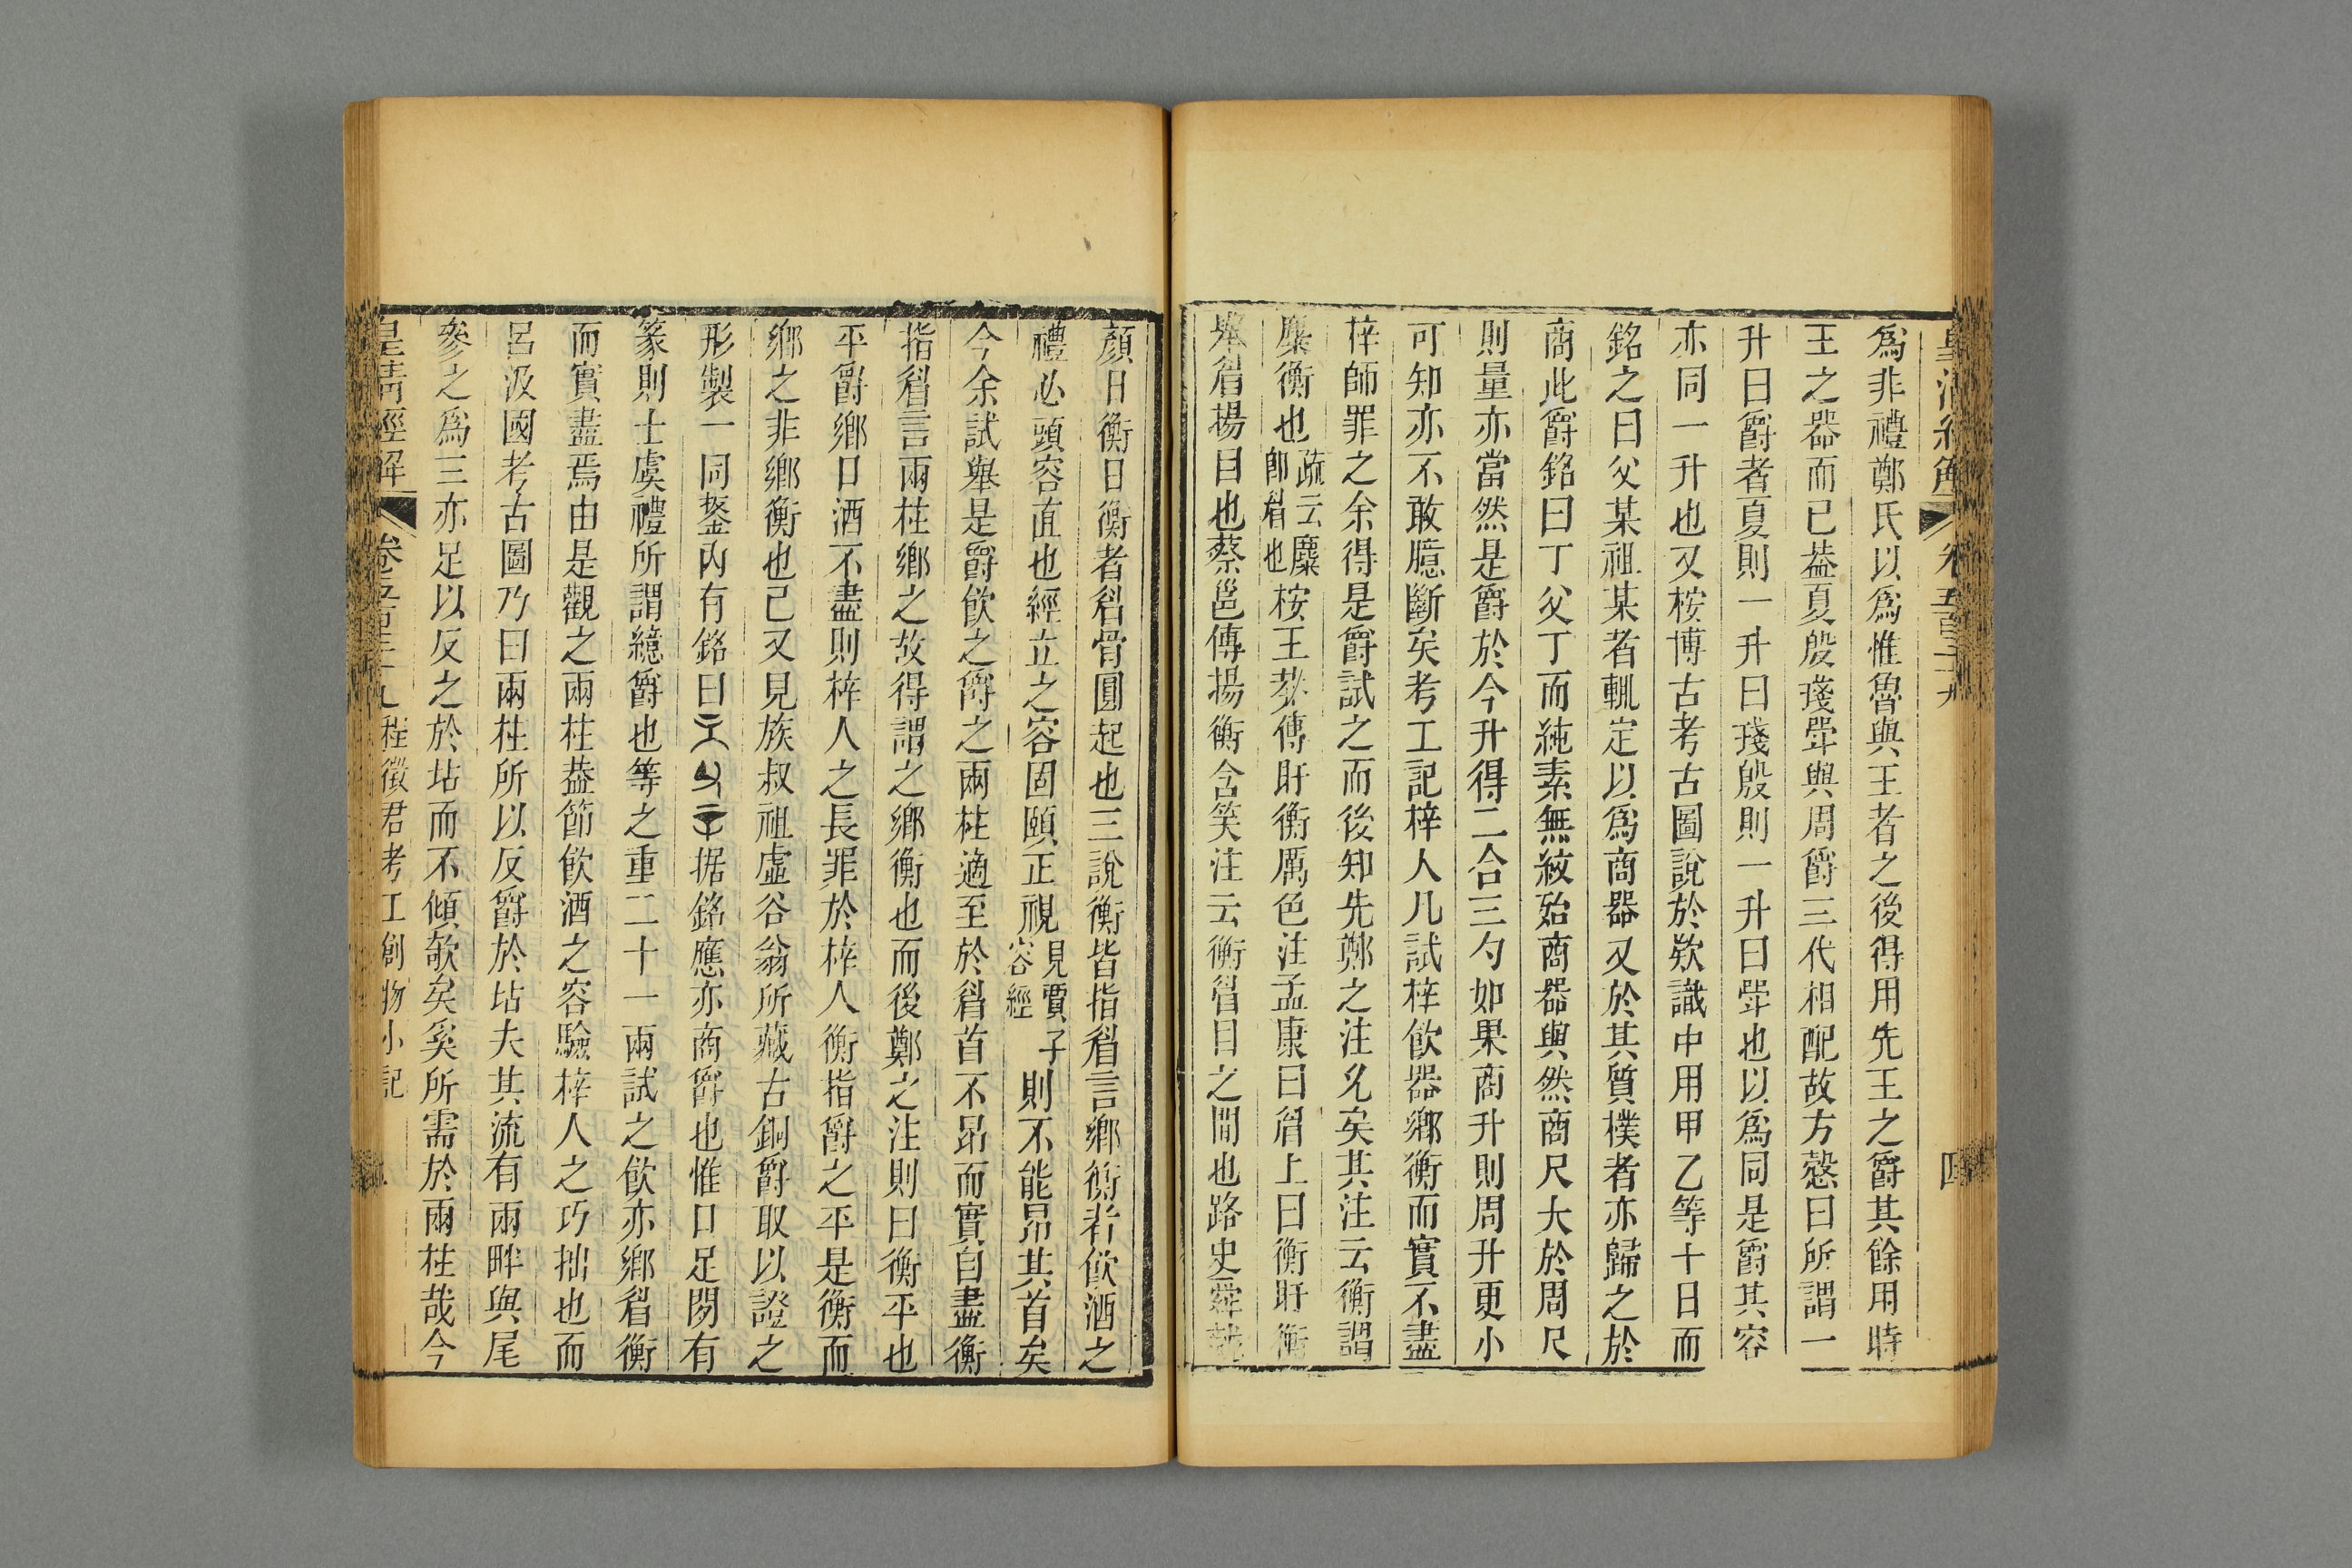 皇清經解 卷五百三十九 四
爲非禮鄭氏以爲惟魯與王者之後得用先王之爵其餘用時
王之器而已葢夏殷琖斝與周爵三代相配故方慤曰所謂一
升曰爵者夏則一升曰琖殷則一升曰斝也以爲同是爵其容
亦同一升也又桉博古考古圖說於欵識中用甲乙等十日而
銘之曰父某祖某者輒定以爲商器又於其質樸者亦歸之於
商此爵銘曰丁父丁而純素無紋殆商器與然商尺大於周尺
則量亦當然是爵於今升得二合三勺如果商升則周升更小
可知亦不敢臆斷矣考工記梓人凡試梓飲器鄉衡而實不盡
梓師罪之余得是爵試之而後知先鄭之注允矣其注云衡謂
麋衡也疏云麋卽眉也桉王莽傳盱衡厲色注孟康曰眉上曰衡盱衡
舉眉揚目也蔡邕傳揚衡含笑注云衡眉目之間也路史舜
顏曰衡曰衡者眉骨圓起也三說衡皆指眉言鄉衡者飲酒之
禮必頭容直也經立之容固頤正視見賈子容經則不能昂其首矣
今余試舉是爵飲之爵之兩柱適至於眉首不昂而實自盡衡
指眉言兩柱鄉之故得謂之鄉衡也而後鄭之注則曰衡平也
平爵鄉口酒不盡則梓人之長罪於梓人衡指爵之平是衡而
鄉之非鄉衡也己又見族叔祖虛谷翁所藏古銅爵取以證之
形製一同鋬內有銘曰據銘應亦商爵也惟口足閒有
篆則士虞禮所謂繶爵也等之重二十一兩試之飲亦鄉眉衡
而實盡焉由是觀之兩柱葢節飲酒之容驗梓人之巧拙也而
呂汲國考古圖乃曰兩柱所以反爵於坫夫其流有兩畔與尾
參之爲三亦足以反之於坫而不傾欹矣奚所需於兩柱哉今
皇清經解 卷五百三十九 程徵君考工創物小記